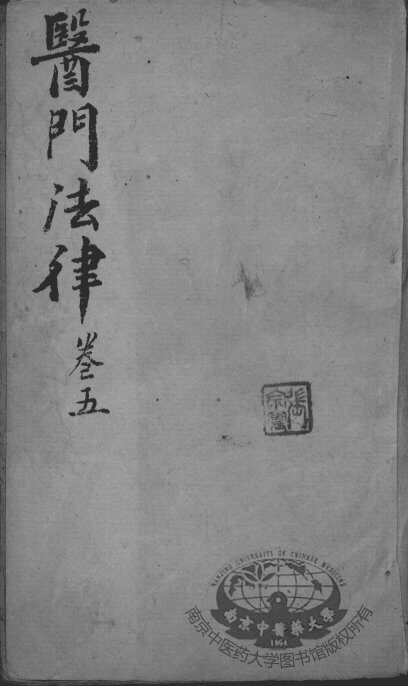 醫門法律
卷五
NANJING UNIVERSITY OF CHINESE MEDICINE
南京中醫藥大學
1954
南京中医药大学图书馆版权所有